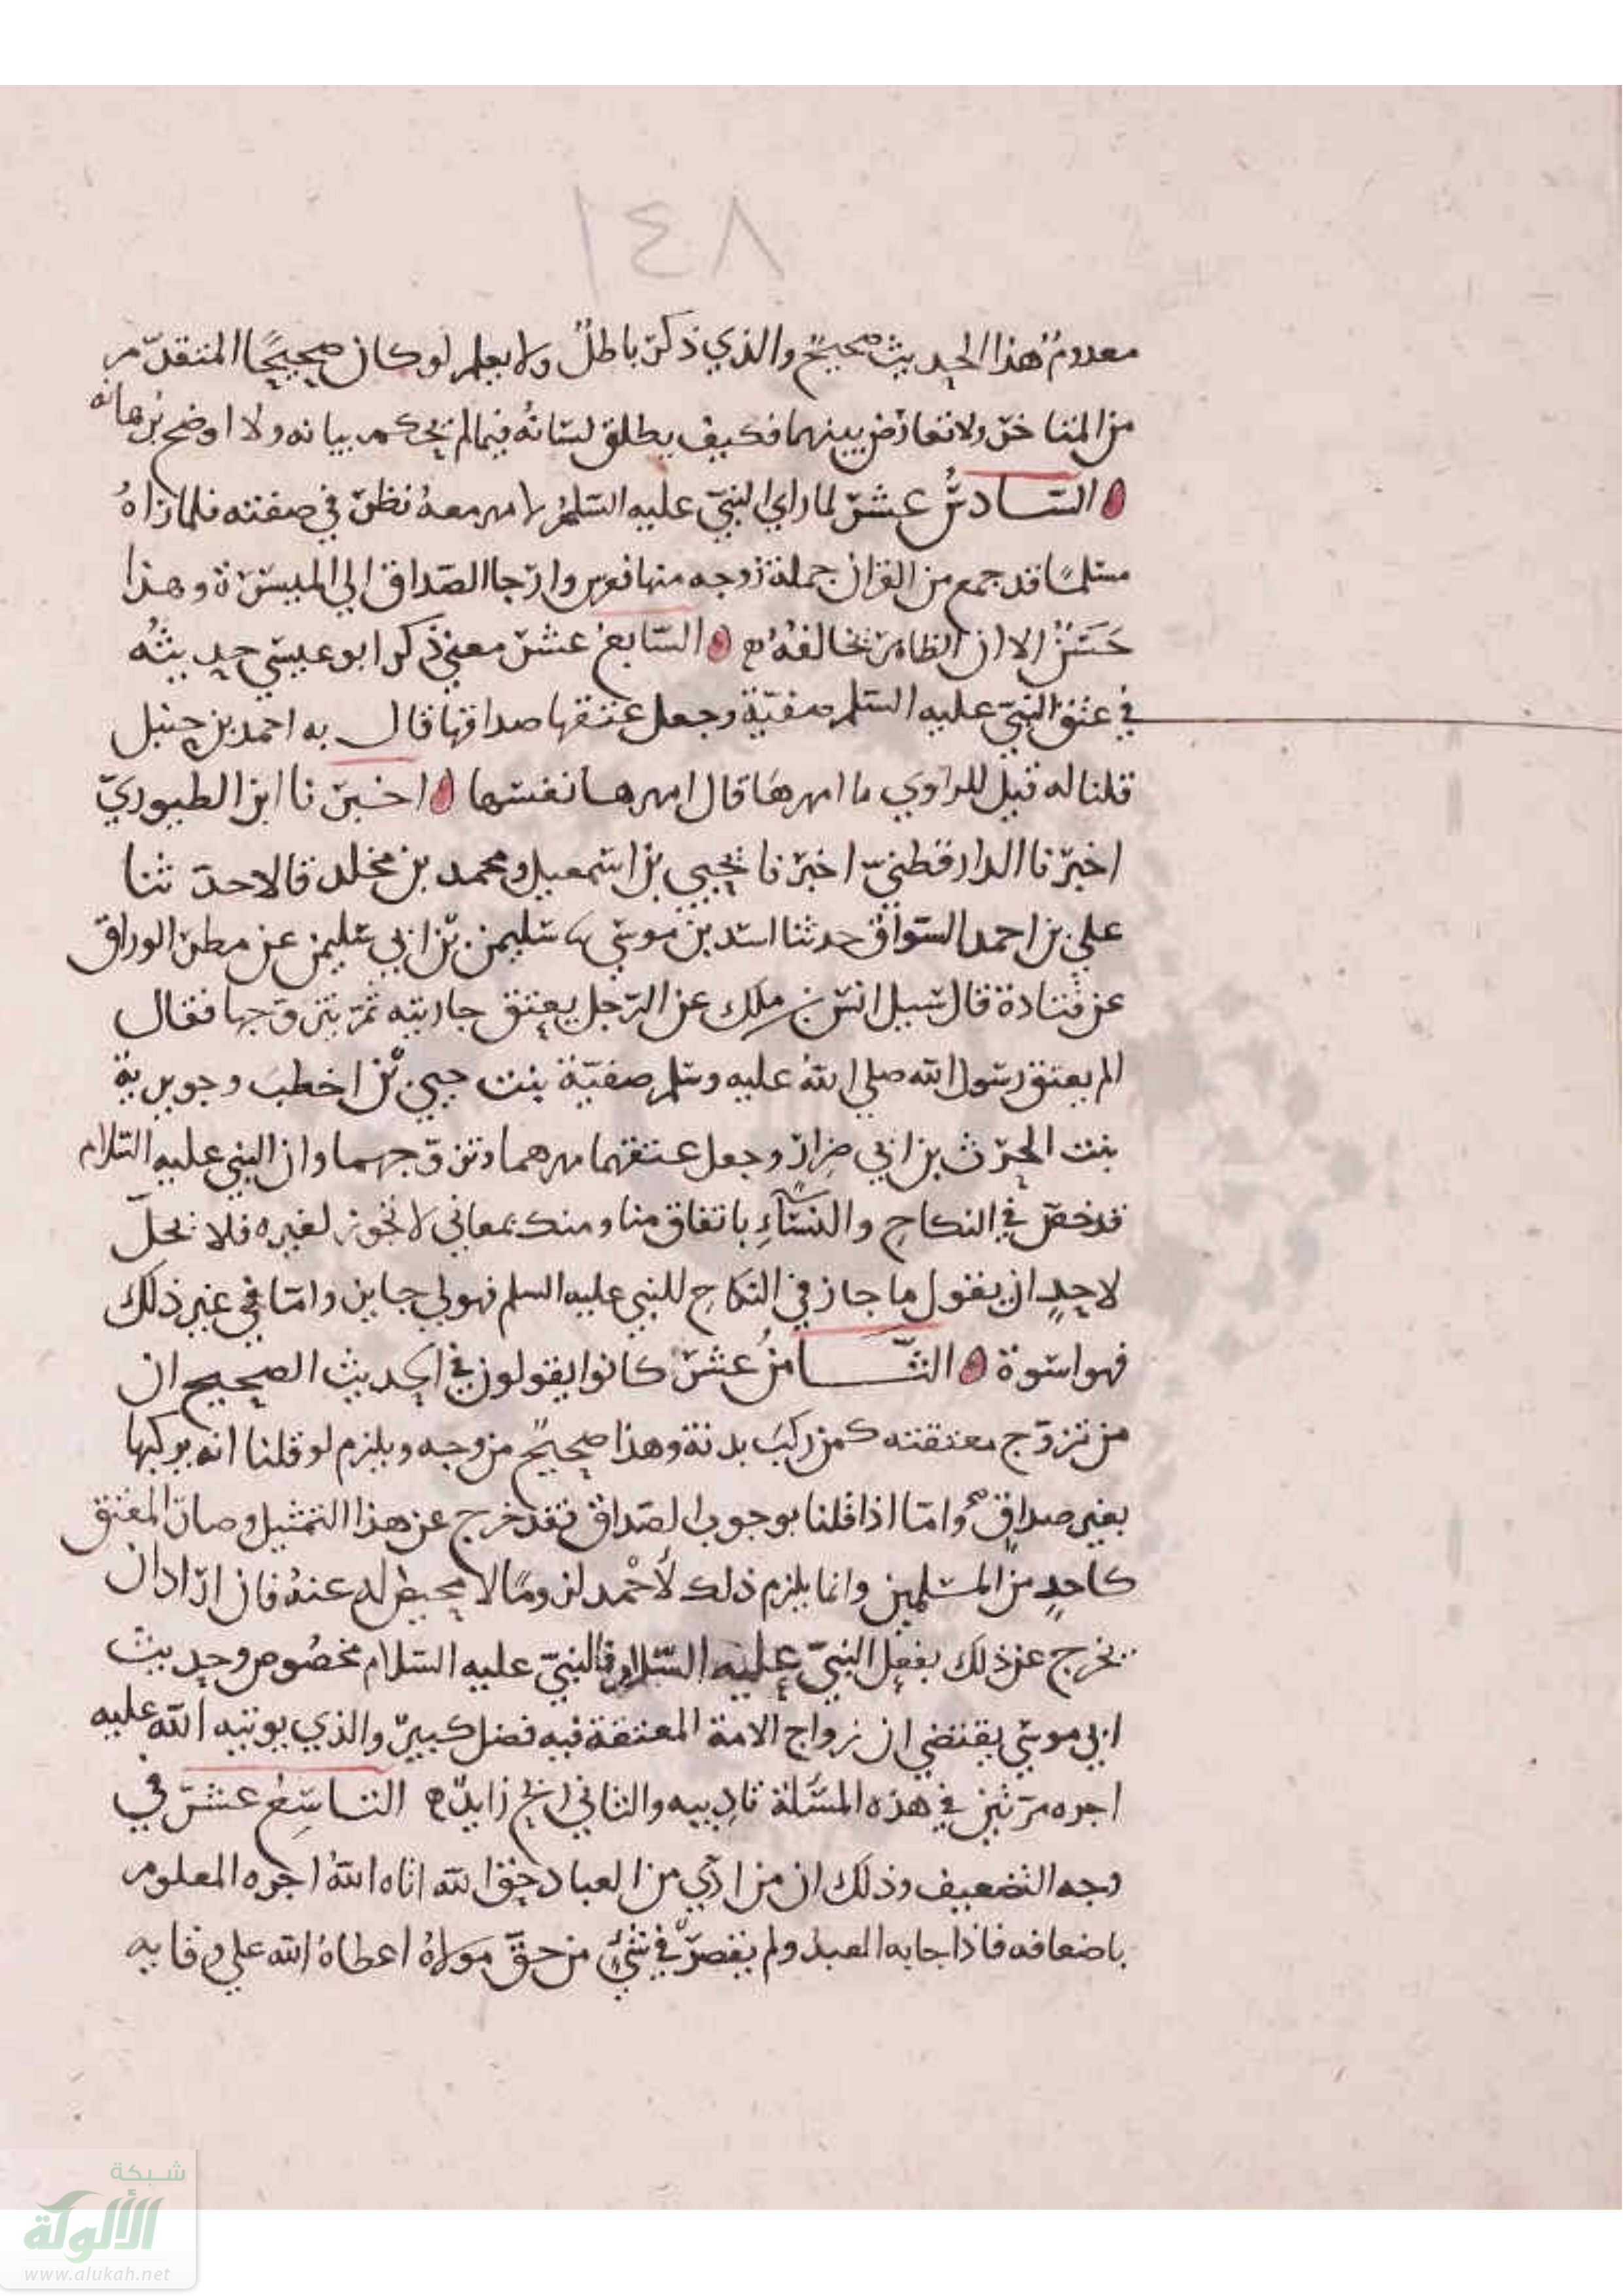 ١٤٨
معدوم هذا الحديث صحيح والذي ذكر باطل ولا يعلم لو كان صحيحا المتقدم
من المتاخر ولا تعارض بينهما فكيف يطلق لسانه فيما لم يحكم بيانه ولا اوضح برهانه
السادس عشر لما راي النبي عليه السلم لا مهر معه نظر في صفته فلما راه
مسلما قد جمع من القران جملة زوجه منها وارجا الصداق الي الميسرة وهذا
حسن الا ان الظاهر يخالفه السابع عشر معني ذكر ابو عيسي حديثه
في عتق النبي عليه السلم صفية وجعل عتقها صداقها قال به احمد بن حنبل
قلنا له قيل للراوي ما امهرها قال امهرها نفسها اخبرنا ابن الطيوري
اخبرنا الدارقطني اخبرنا يحيي بن اسمعيل ومحمد بن مخلد قالا حدثنا
علي بن احمد السواق حدثنا اسد بن موسي نا سليمن بن ابي سليمن عن مطر الوراق
عن قتادة قال سيل انس بن ملك عن الرجل يعتق جاريته ثم يتزوجها فقال
الم يعتق رسول الله صلي الله عليه وسلم صفية بنت حيي بن اخطب وجويرية
بنت الحرث بن ابي ضرار وجعل عتقهما مهرهما وتزوجهما وان النبي عليه السلام
قد خص في النكاح والنساء باتفاق منا ومنك بمعاني لا تجوز لغيره فلا يحل
لاحد ان يقول ما جاز في النكاح للنبي عليه السلم فهو لي جايز واما في غير ذلك
فهو اسوة الثامن عشر كانوا يقولون في الحديث الصحيح ان
من تزوج معتقته كمن ركب بدنة وهذا صحيح من وجه ويلزم لو قلنا انه يركبها
بغير صداق واما اذا قلنا بوجوب الصداق فقد خرج عن هذا التمثيل وصار المعتق
كاحد من المسلمين وانما يلزم ذلك لأحمد لزوما لا محيص له عنه فان اراد ان
يخرج عن ذلك بفعل النبي عليه السلام فالنبي عليه السلام مخصوص وحديث
ابي موسي يقتضي ان زواج الامة المعتقة فيه فضل كبير والذي يوتيه الله عليه
اجره مرتين في هذه المسلة تاديبه والثاني زايد التاسع عشر في
وجه التضعيف وذلك ان من ادي من العباد حق الله اتاه الله اجره المعلوم
باضعافه فاذا جا به العبد ولم يقصر في شي من حق مولاه اعطاه الله علي وفايه
شبكة
الألوكة
www.alukah.net